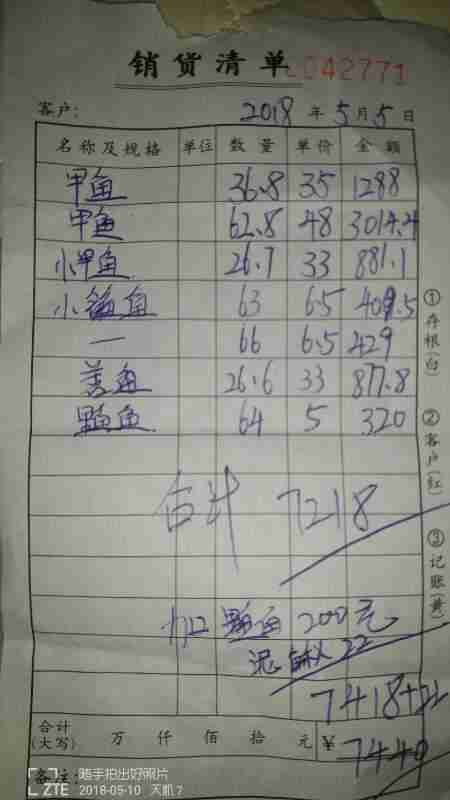 销货清单 0042771
客户: 2018年5月5日
名称及规格 单位 数量 单价 金额
甲鱼 36.8 35 1288
甲鱼 62.8 48 3014.4
小甲鱼 26.7 33 881.1
小 鱼 63 6.5 409.5
一 66 6.5 429
善鱼 26.6 33 877.8
鱼 64 5 320
合计 7218
加 鱼 200元
泥鳅 22
7418+22
合计(大写) 万 仟 佰 拾 元 ¥ 7440
备注:
①存根(白) ②客户(红) ③记账(黄)
随手拍出好照片
ZTE 2018-05-10 天机7